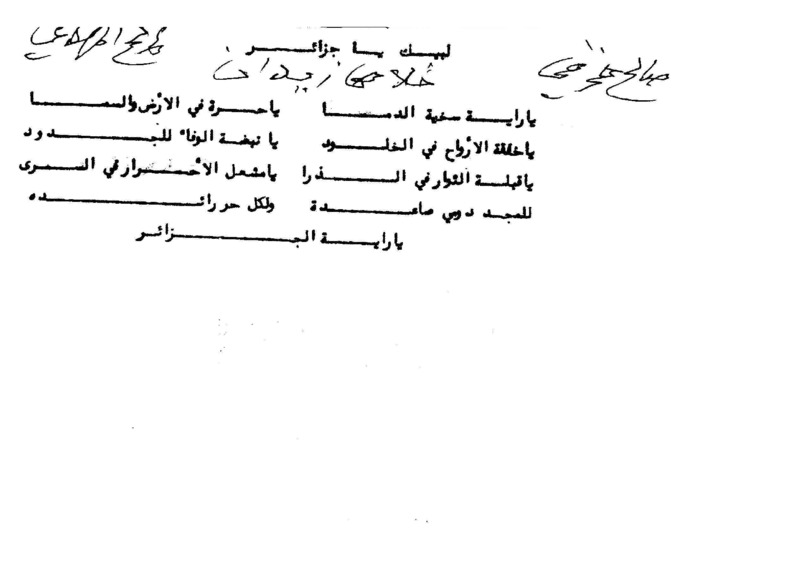 لبيك يا جزائر
صالح خرفي
يا راية سخية الدما يا حرة في الأرض والسما
يا خفقة الأرواح في الخلود يا نبضة الوفاء للجدود
يا قبلة الثوار في الذرا يا مشعل الأحرار في السرى
للمجد دوبي صاعدة ولكل حر رائده
يا راية الجزائر